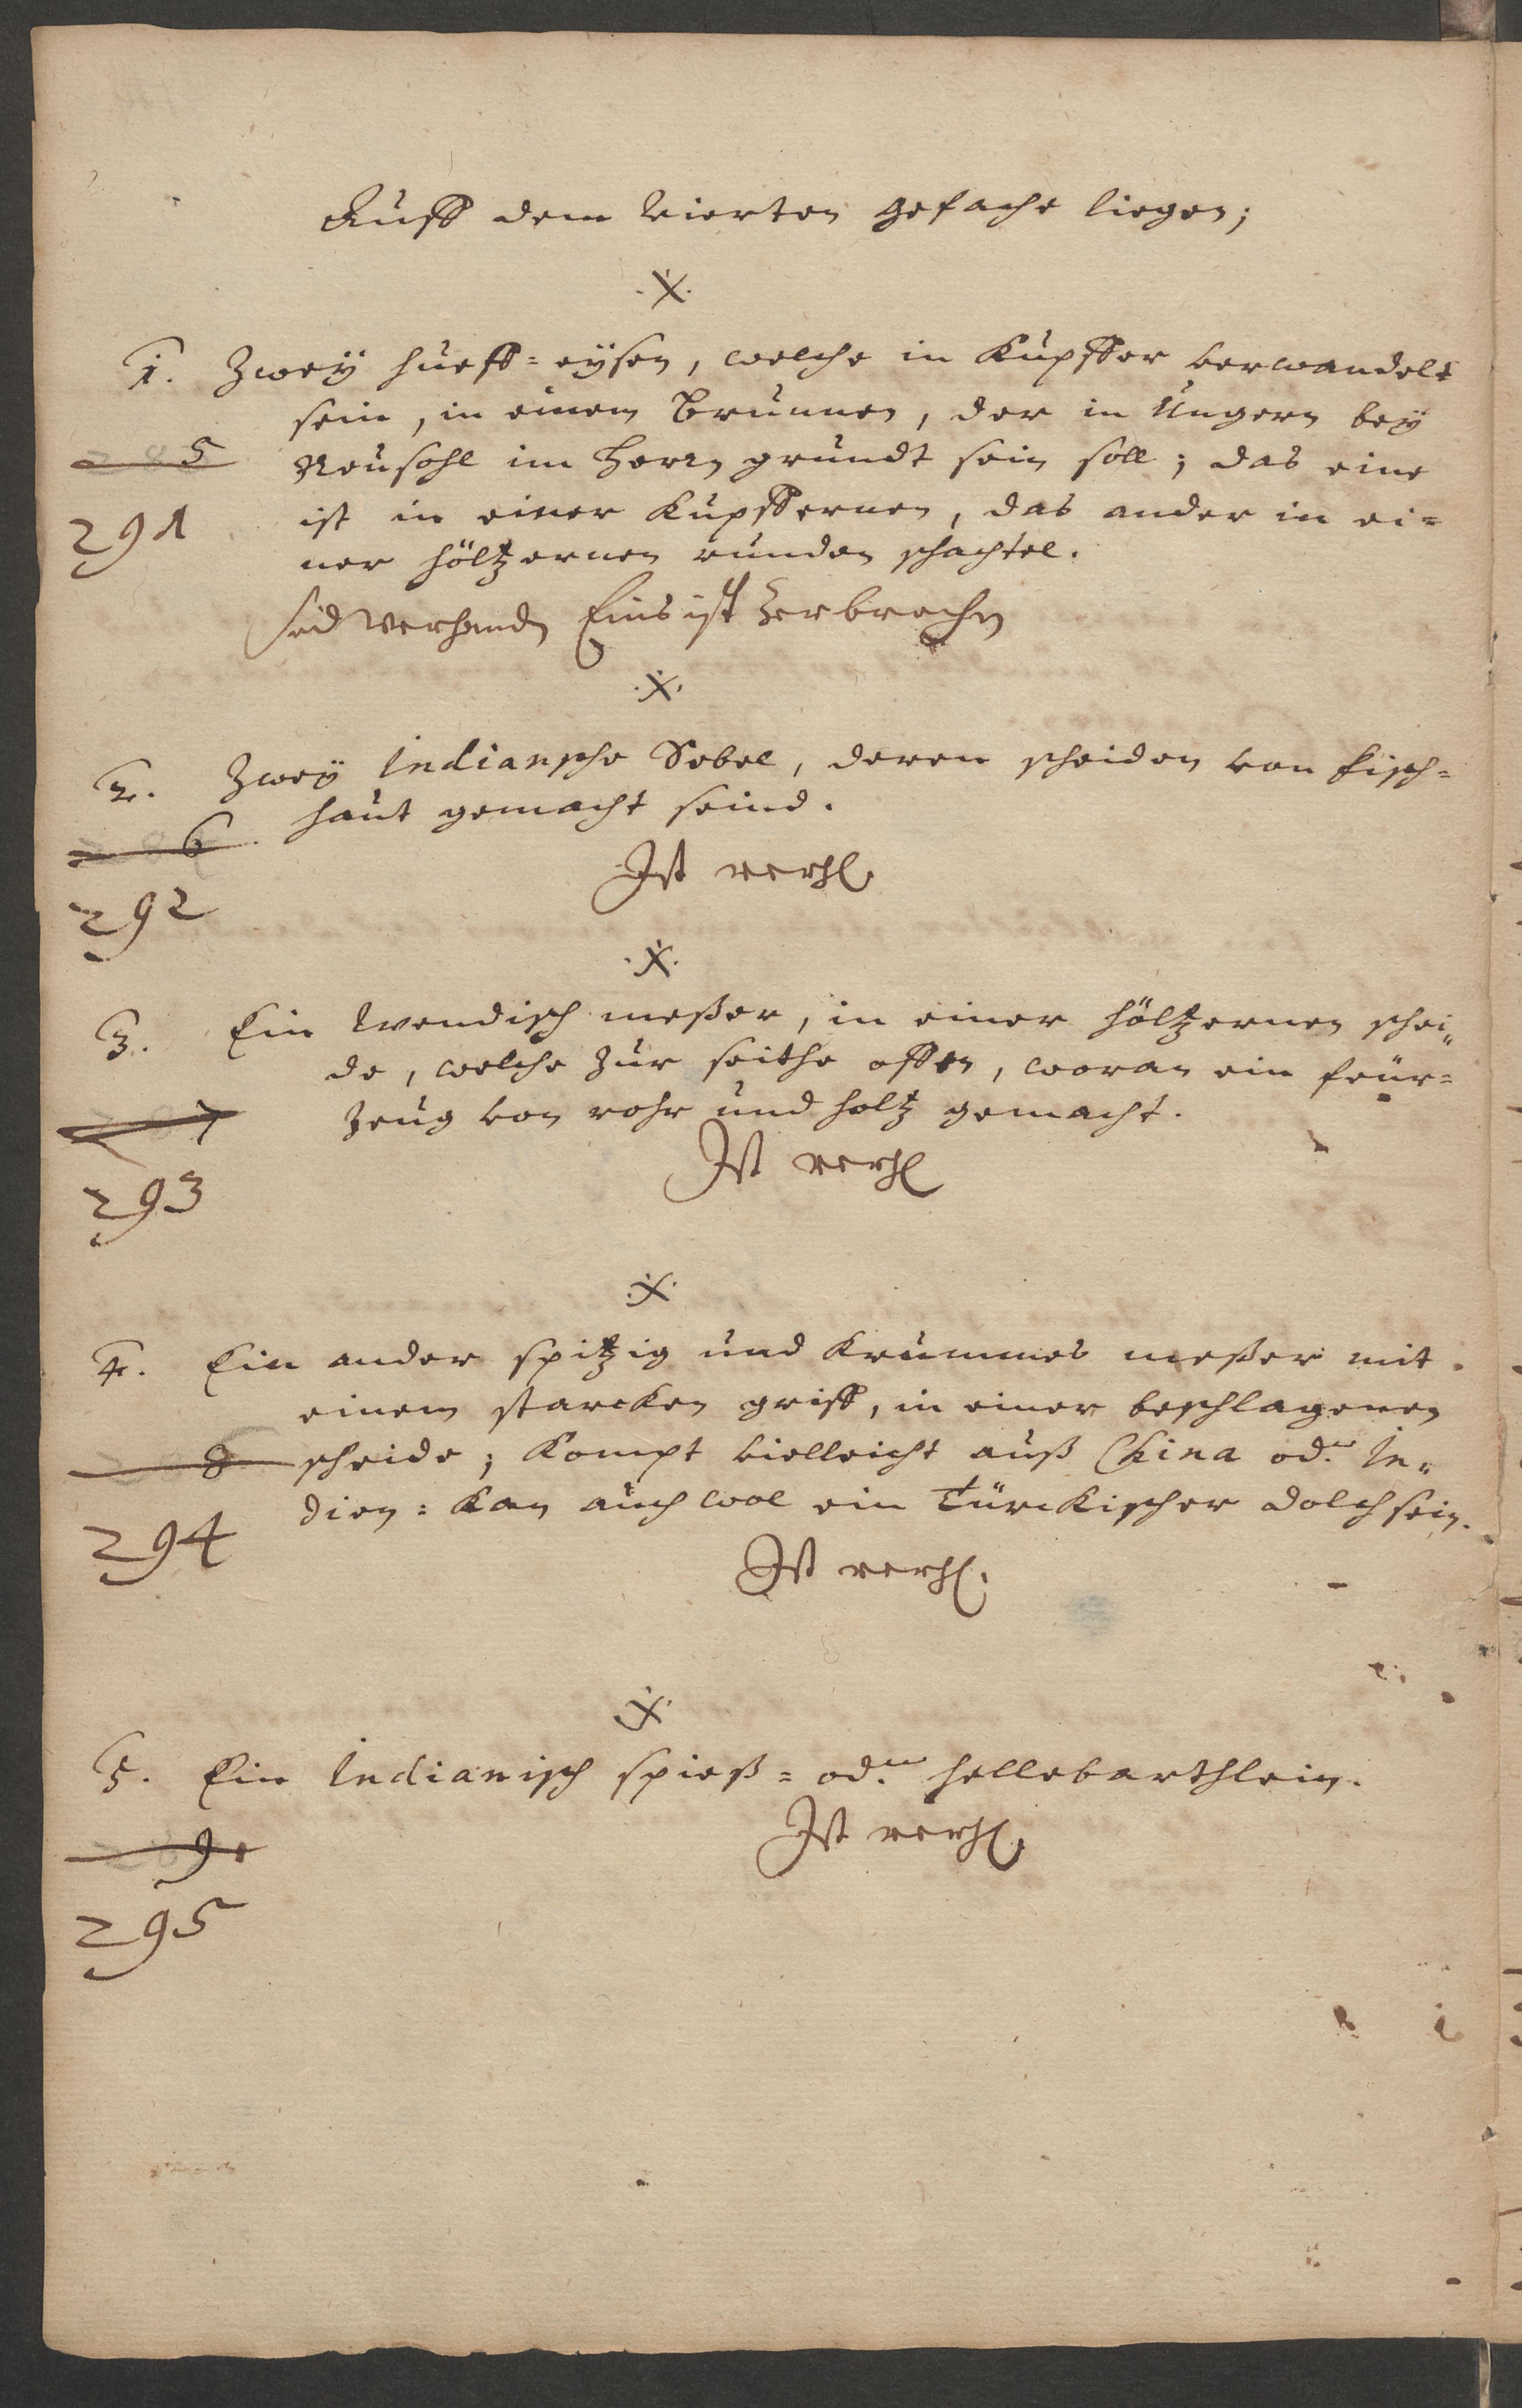 Auff dem Vierten gefache liegen;
.X.
1. Zweÿ hueff=eÿsen, welche in Kupffer verwandelt
sein, in einem Brunnen, der in Ungern beÿ
5
Neusohl im Herrn grundt sein soll; das eine
291
ist in einer Kupffernen, das ander in ei=
ner höltzernen runden schachtel.
sind verhanden Eins ist Zerbrochen
.X.
2. Zweÿ Indiansche Sebel, deren scheiden von fisch=
haut gemacht seind.
6
Ist verh.
292
.X.
3. Ein Wendisch meßer, in einer höltzernen schei„
de, welche zur seithe offen, woran ein feür=
7
Zeug von rohr und holtz gemacht.
Ist verh
293
.X.
4. Ein ander spitzig und Krummes meßer mit
einem starcken griff, in einer beschlagenen
8
scheide; Kompt vielleicht auß China od. In„
dien: Kan auch wol ein Türckischer dolch sein.
294
Ist verh.
.X.
5. Ein Indianisch spieß= od. hellebarthlein.
9
Ist verh.
295